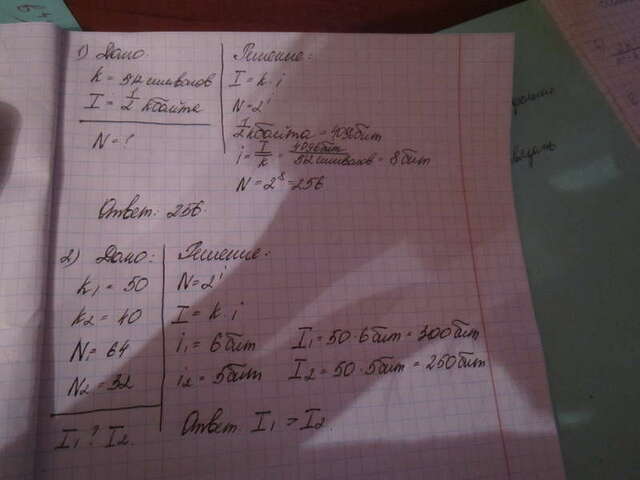 1) Дано:
k = 512 символов
I = 1/2 кбайта
N = ?
Решение:
I = k · i
N = 2^i
1/2 кбайта = 4096 бит
i = I/k = 4096 бит/512 символов = 8 бит
N = 2^8 = 256
Ответ: 256.
2) Дано:
k1 = 50
k2 = 40
N1 = 64
N2 = 32
I1 ? I2.
Решение:
N = 2^i
I = k · i
i1 = 6 бит I1 = 50 · 6 бит = 300 бит
i2 = 5 бит I2 = 50 · 5 бит = 250 бит
Ответ: I1 > I2.